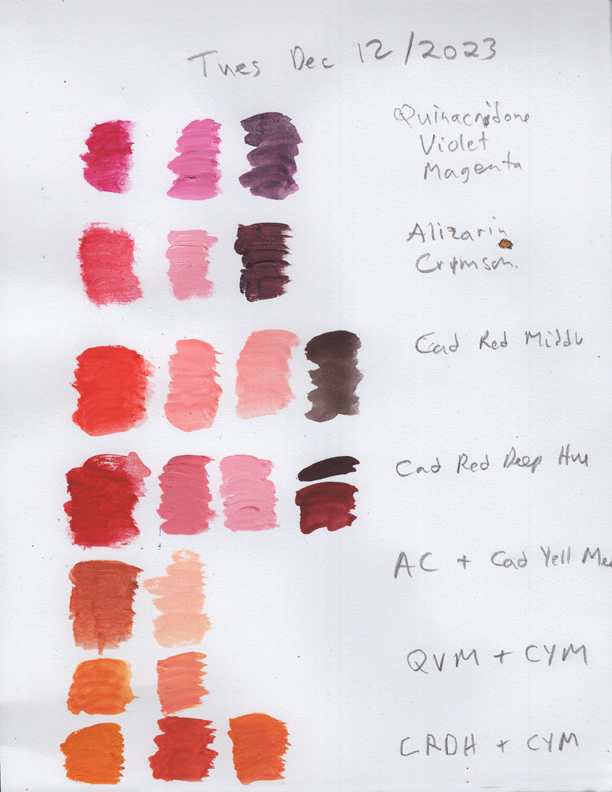 Tues Dec 12/2023
Quinacridone
Violet
Magenta
Alizarin
Crymson.
Cad Red Middle
Cad Red Deep Hue
AC + Cad Yell Med
QVM + CYM
CRDH + CYM